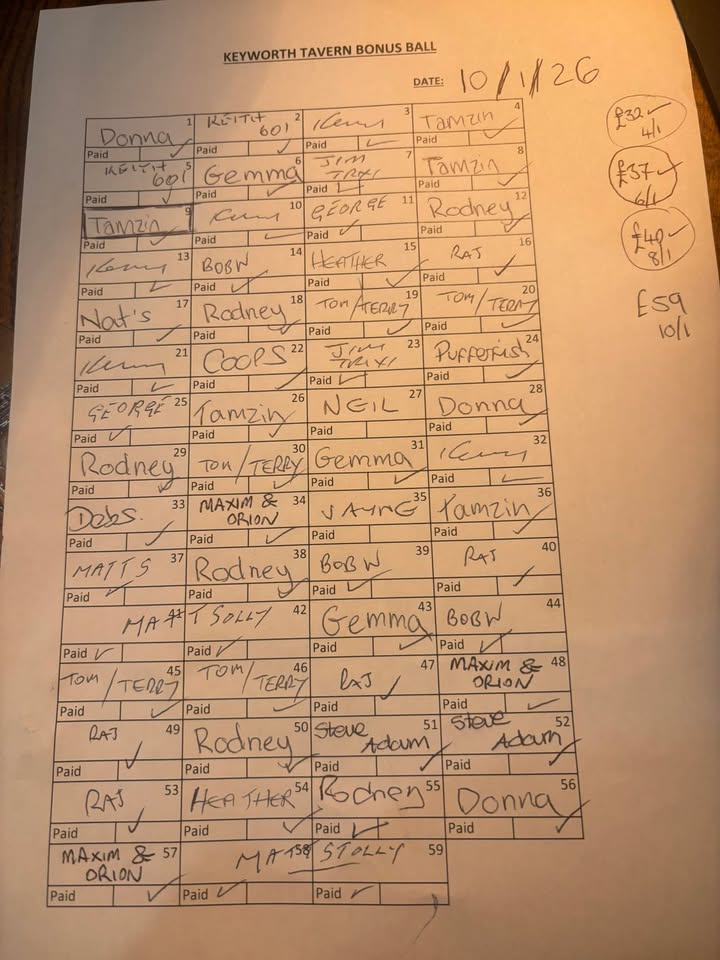 KEYWORTH TAVERN BONUS BALL
DATE: 10/1/26
1 2 3 4
Donna KEITH 601 Kenny Tamzin
Paid Paid Paid Paid
5 6 7 8
KEITH 601 Gemma JIM TRXI Tamzin
Paid Paid Paid Paid
9 10 11 12
Tamzin Kenny GEORGE Rodney
Paid Paid Paid Paid
13 14 15 16
Kenny BOBW HEATHER RAJ
Paid Paid Paid Paid
17 18 19 20
Nat's Rodney TOM/TERRY TOM/TERRY
Paid Paid Paid Paid
21 22 23 24
Kenny COOPS JIM TRIXI Pufferfish
Paid Paid Paid Paid
25 26 27 28
GEORGE Tamzin NEIL Donna
Paid Paid Paid Paid
29 30 31 32
Rodney TOM/TERRY Gemma Kenny
Paid Paid Paid Paid
33 34 35 36
Debs. MAXIM & ORION JAYNE Tamzin
Paid Paid Paid Paid
37 38 39 40
MATTS Rodney BOBW RAJ
Paid Paid Paid Paid
41 42 43 44
MATT SOLLY Gemma BOBW
Paid Paid Paid Paid
45 46 47 48
TOM/TERRY TOM/TERRY RAJ MAXIM & ORION
Paid Paid Paid Paid
49 50 51 52
RAJ Rodney Steve Adam Steve Adam
Paid Paid Paid Paid
53 54 55 56
RAJ HEATHER Rodney Donna
Paid Paid Paid Paid
57 58 59
MAXIM & ORION MATT STOLLY
Paid Paid Paid
£32
4/1
£37
6/1
£40
8/1
£59
10/1